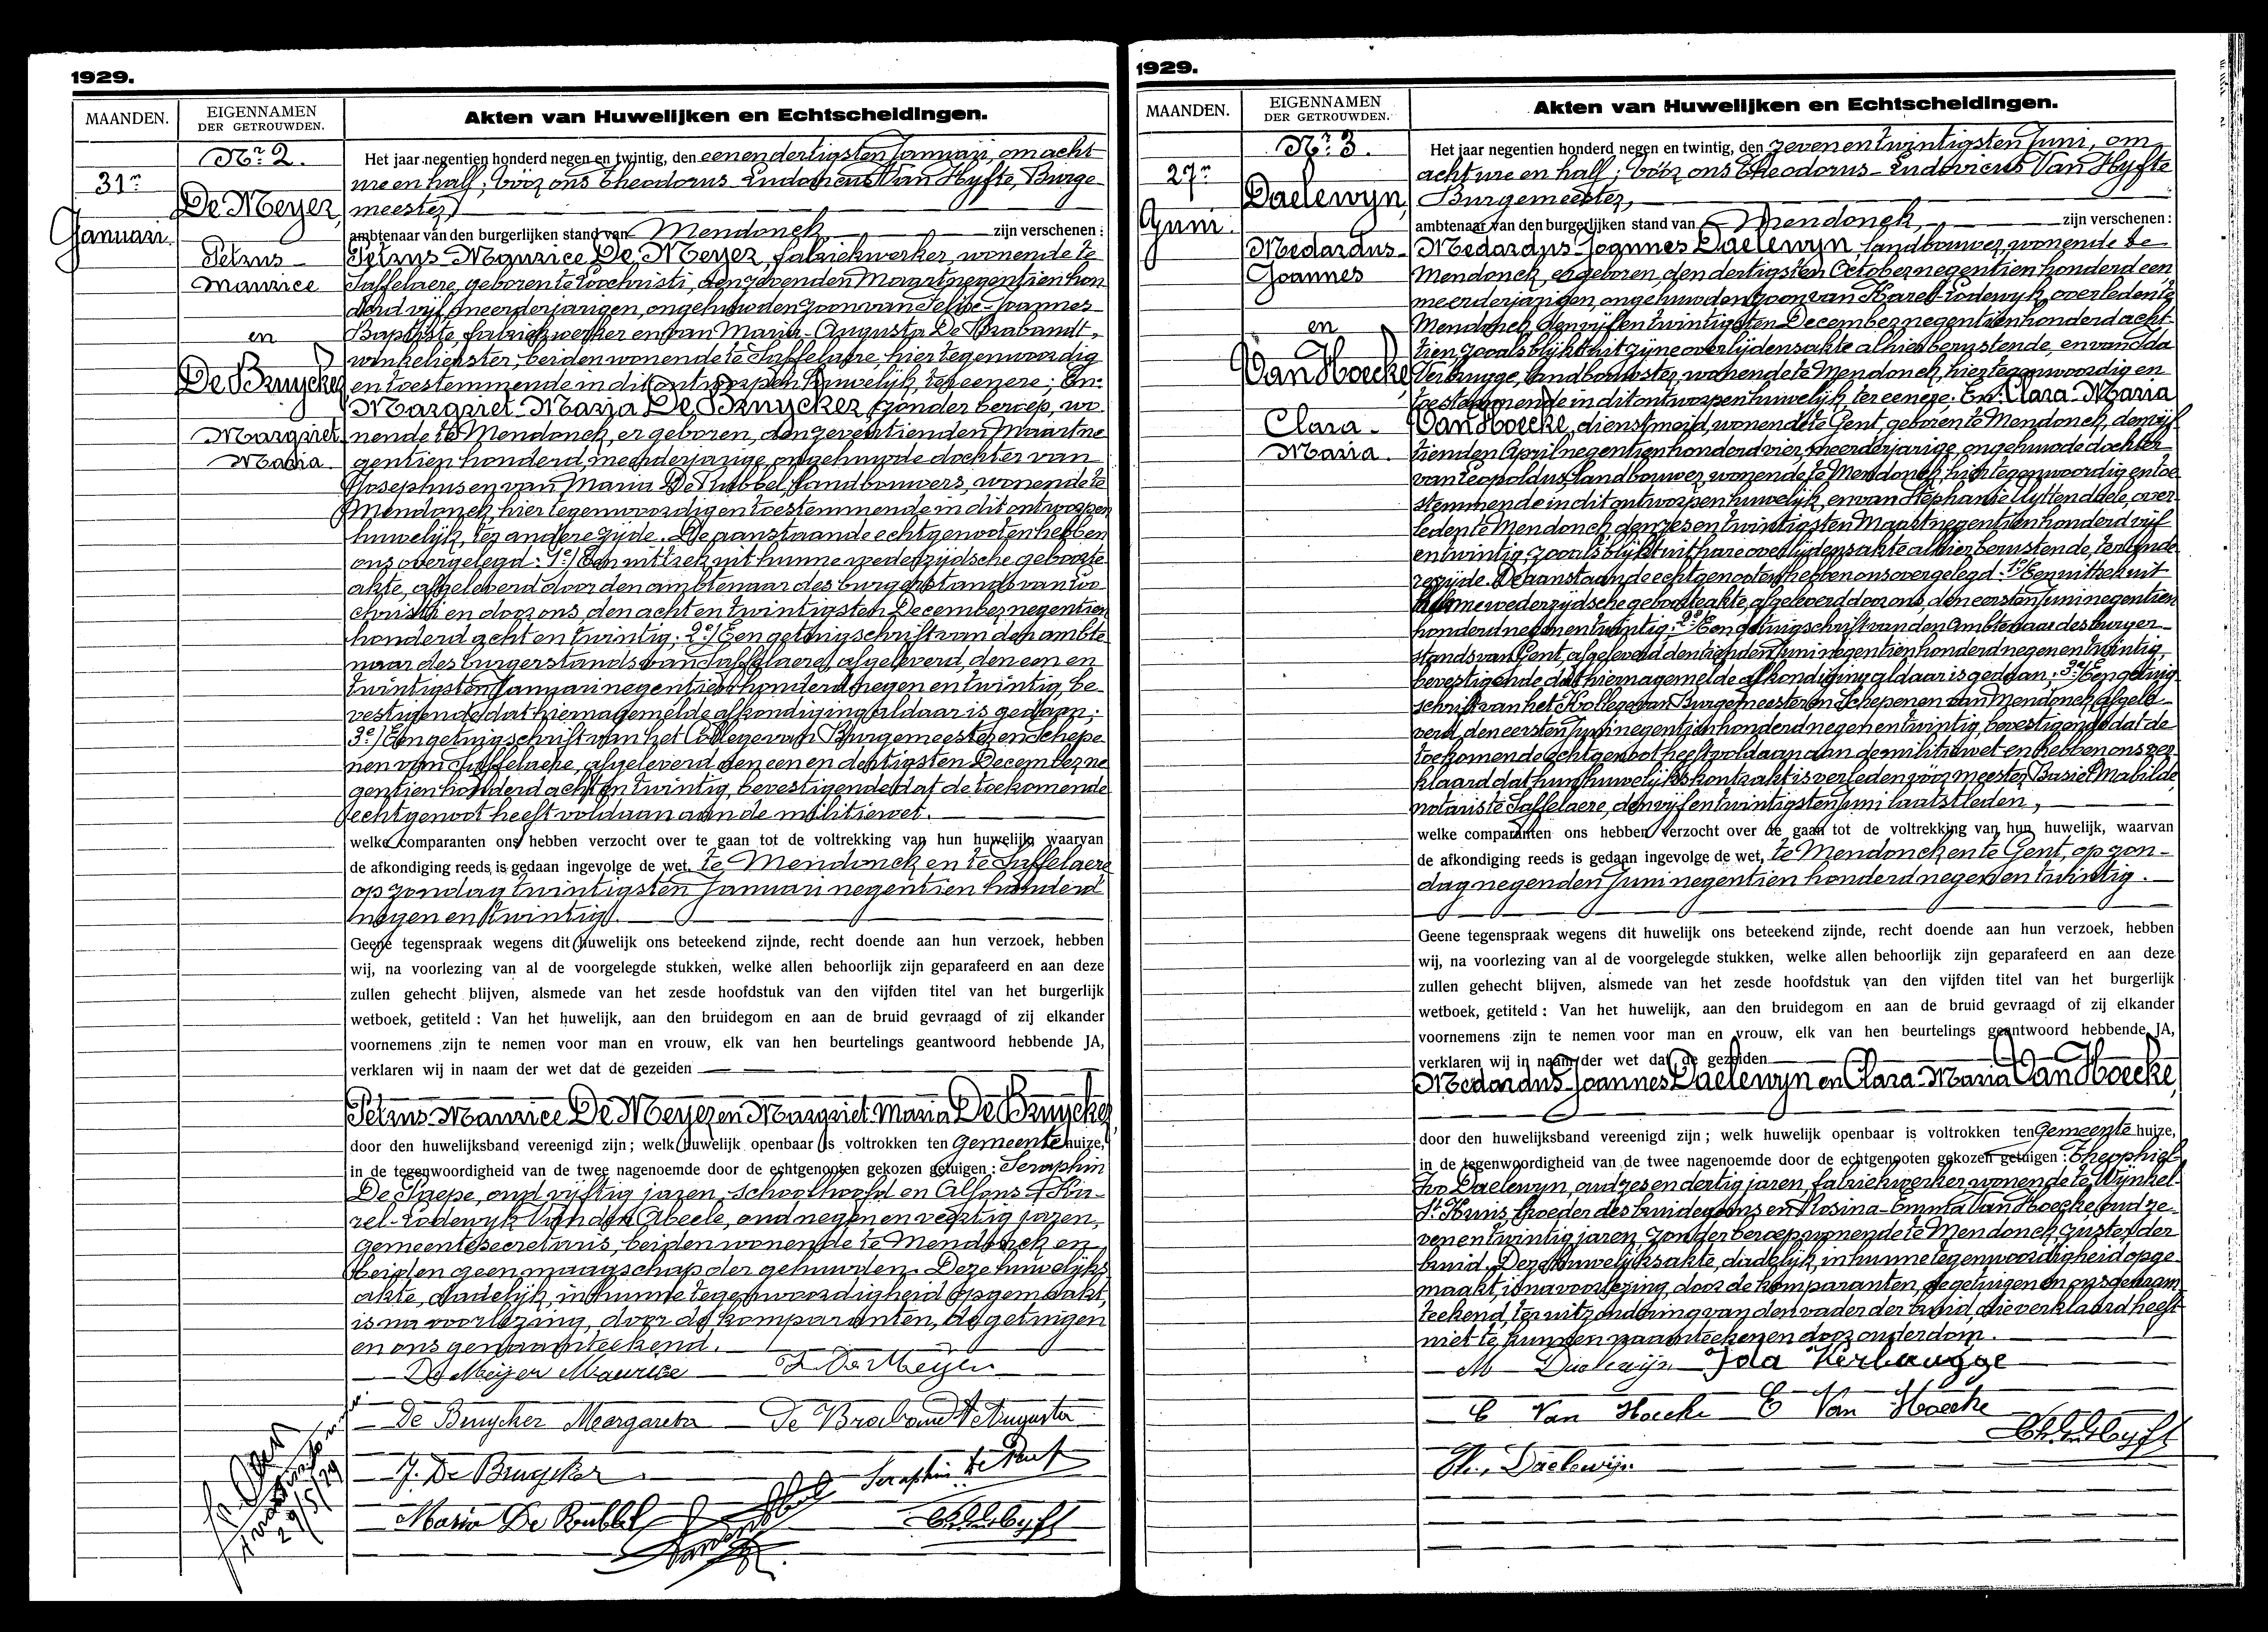 1929.
MAANDEN.
EIGENNAMEN
DER GETROUWDEN.
Akten van Huwelijken en Echtscheidingen.
Nr. 2.
31n
Januari.
De Meyer,
Petrus
Maurice
en
De Bruycker
Margriet
Maria
Het jaar negentien honderd negen en twintig, den eenendertigsten Januari, om acht
ure en half; vóór ons Theodorus Ludovicus Van Hyfte, Burge-
meester,
ambtenaar van den burgerlijken stand van Mendonck zijn verschenen :
Petrus Maurice De Meyer, fabriekwerker, wonende te
Saffelaere, geboren te Loochristi, den zevenden Maart negentien hon-
derd vijf, meerderjarigen, ongehuwden zoon van Felipe-Joannes-
Baptiste, fabriekwerker en van Maria-Augusta De Brabandt,
winkelierster, beiden wonende te Saffelaere, hier tegenwoordig
en toestemmende in dit ontworpen huwelijk, ter eenere; En:
Margriet-Maria De Bruycker, zonder beroep, wo-
nende te Mendonck, er geboren, den zeventienden Maart ne-
gentien honderd, meerderjarige, ongehuwde dochter van
Josephus en van Maria De Rubbel, landbouwers, wonende te
Mendonck, hier tegenwoordig en toestemmende in dit ontworpen
huwelijk, ter andere zijde. De aanstaande echtgenooten hebben
ons overgelegd: 1e/ Een uittrek uit hunne wederzijdsche geboorte-
akte, afgeleverd door den ambtenaar des burgerstands van Loo-
christi en door ons, den acht en twintigsten December negentien
honderd acht en twintig; 2e/ Een getuigschrift van den ambte-
naar des burgerstands van Saffelaere, afgeleverd, den een en
twintigsten Januari negentien honderd negen en twintig, be-
vestigende dat hiernagemelde afkondiging aldaar is gedaan;
3e/ Een getuigschrift van het College van Burgemeester en Schepe-
nen van Saffelaere, afgeleverd den een en dertigsten December ne-
gentien honderd acht en twintig, bevestigende dat de toekomende
echtgenoot heeft voldaan aan de militiewet.
welke comparanten ons hebben verzocht over te gaan tot de voltrekking van hun huwelijk, waarvan
de afkondiging reeds is gedaan ingevolge de wet, te Mendonck en te Saffelaere
op zondag twintigsten Januari negentien honderd
negen en twintig.
Geene tegenspraak wegens dit huwelijk ons beteekend zijnde, recht doende aan hun verzoek, hebben
wij, na voorlezing van al de voorgelegde stukken, welke allen behoorlijk zijn geparafeerd en aan deze
zullen gehecht blijven, alsmede van het zesde hoofdstuk van den vijfden titel van het burgerlijk
wetboek, getiteld : Van het huwelijk, aan den bruidegom en aan de bruid gevraagd of zij elkander
voornemens zijn te nemen voor man en vrouw, elk van hen beurtelings geantwoord hebbende JA,
verklaren wij in naam der wet dat de gezeiden
Petrus-Maurice De Meyer en Margriet Maria De Bruycker
door den huwelijksband vereenigd zijn ; welk huwelijk openbaar is voltrokken ten Gemeentehuize,
in de tegenwoordigheid van de twee nagenoemde door de echtgenooten gekozen getuigen : Seraphin
De Paepe, oud vijftig jaren, schoolhoofd en Alfons-Ka-
rel-Lodewyk Van den Abeele, oud negen en veertig jaren,
gemeentesecretaris, beiden wonende te Mendonck en
beiden geen maagschap der gehuwden. Deze huwelijks-
akte, dadelijk, in hunne tegenwoordigheid opgemaakt,
is na voorlezing, door de komparanten, de getuigen
en ons genaamteekend.
De Meijer Maurice
De Bruycker Margareta De Brabandt Augusta
J. De Bruycker
Maria De Rubbel
29/5/29
1929.
MAANDEN.
EIGENNAMEN
DER GETROUWDEN.
Akten van Huwelijken en Echtscheidingen.
Nr. 3.
27n
Juni.
Daelewyn,
Medardus-
Joannes
en
Van Hoecke,
Clara-
Maria.
Het jaar negentien honderd negen en twintig, den zeven en twintigsten Juni, om
acht ure en half; vóór ons Theodorus-Ludovicus Van Hyfte
Burgemeester,
ambtenaar van den burgerlijken stand van Mendonck, zijn verschenen :
Medardus-Joannes Daelewyn, landbouwer, wonende te
Mendonck, er geboren, den dertigsten October negentien honderd een,
meerderjarigen, ongehuwden zoon van Karel-Lodewyk, overleden te
Mendonck, den vijf en twintigsten December negentien honderd acht-
tien, zooals blijkt uit zijne overlijdensakte alhier berustende, en van Ida
Verbrugge, landbouwster, wonende te Mendonck, hier tegenwoordig en
toestemmende in dit ontworpen huwelijk, ter eenere. En: Clara-Maria
Van Hoecke, dienstmeid, wonende te Gent, geboren te Mendonck, den vijf-
tienden April negentien honderd vier, meerderjarige, ongehuwde dochter
van Leopoldus, landbouwer, wonende te Mendonck, hier tegenwoordig en toe-
stemmende in dit ontworpen huwelijk, en van Stephanie Uyttendaele, over-
leden te Mendonck, den zes en twintigsten Maart negentien honderd vijf
en twintig, zooals blijkt uit hare overlijdensakte alhier berustende, ter ande-
re zijde. De aanstaande echtgenooten hebben ons overgelegd: 1e/ Een uittrek uit
hunne wederzijdsche geboorteakte, afgeleverd door ons, den eersten Juni negentien
honderd negen en twintig; 2e/ Een getuigschrift van den ambtenaar des burger-
stands van Gent, afgeleverd den tienden Juni negentien honderd negen en twintig,
bevestigende dat hiernagemelde afkondiging aldaar is gedaan; 3e/ Een getuig-
schrift van het Kollege van Burgemeester en Schepenen van Mendonck, afgele-
verd, den eersten Juni negentien honderd negen en twintig, bevestigende dat de
toekomende echtgenoot heeft voldaan aan de militiewet en hebben ons ver-
klaard dat hun huwelijkskontrakt is verleden vóór meester Basiel Mabilde,
notaris te Saffelaere, den vijf en twintigsten Juni laatstleden,
welke comparanten ons hebben verzocht over te gaan tot de voltrekking van hun huwelijk, waarvan
de afkondiging reeds is gedaan ingevolge de wet, te Mendonck en te Gent, op zon-
dag negenden Juni negentien honderd negen en twintig.
Geene tegenspraak wegens dit huwelijk ons beteekend zijnde, recht doende aan hun verzoek, hebben
wij, na voorlezing van al de voorgelegde stukken, welke allen behoorlijk zijn geparafeerd en aan deze
zullen gehecht blijven, alsmede van het zesde hoofdstuk van den vijfden titel van het burgerlijk
wetboek, getiteld : Van het huwelijk, aan den bruidegom en aan de bruid gevraagd of zij elkander
voornemens zijn te nemen voor man en vrouw, elk van hen beurtelings geantwoord hebbende JA,
verklaren wij in naam der wet dat de gezeiden
Medardus-Joannes Daelewyn en Clara-Maria Van Hoecke,
door den huwelijksband vereenigd zijn ; welk huwelijk openbaar is voltrokken ten Gemeentehuize,
in de tegenwoordigheid van de twee nagenoemde door de echtgenooten gekozen getuigen : Theophiel
Ivo Daelewyn, oud zes en dertig jaren, fabriekwerker, wonende te Wynkel-
St. Kruis, broeder des bruidegoms en Rosina-Emma Van Hoecke, oud ze-
ven en twintig jaren, zonder beroep, wonende te Mendonck, zuster der
bruid. Deze huwelijksakte, dadelijk, in hunne tegenwoordigheid opge-
maakt, is na voorlezing, door de komparanten, de getuigen en ons genaam-
teekend, ter uitzondering van den vader der bruid, die verklaard heeft
niet te kunnen naamteekenen door ouderdom.
M Daelewijn Ida Verbrugge
C Van Hoecke E Van Hoecke
Th. Daelewijn